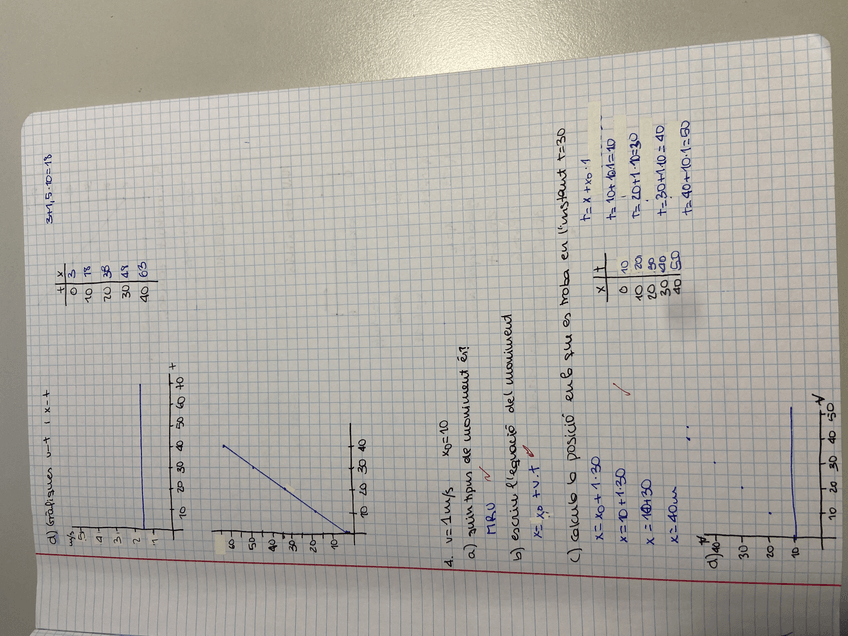 d) Gràfiques v-t i x-t
m/s
5
4
3
2
1
10 20 30 40 50 60 70 t
t x
0 3
10 18
20 38
30 48
40 63
3+1,5·10=18
60
50
40
30
20
10
10 20 30 40
4. v=1m/s x₀=10
a) quin tipus de moviment és?
MRU
b) escriu l'equació del moviment
x=x₀+v.t
c) calcula la posició en la que es troba en l'instant t=30
x=x₀+1·30
x=10+1·30
x=10+30
x=40m
x t
0 10
10 20
20 30
30 40
40 50
t=x+x₀·1
t=20+1·10=30
t=30+1·10=40
t=40+10·1=50
d)
40
30
20
10
10 20 30 40 50